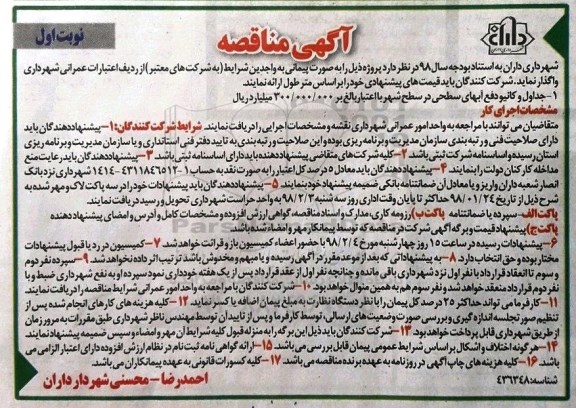 نوبت اول
آگهی مناقصه
شهرداری داران به استناد بودجه سال ۹۸ در نظر دارد پروژه ذیل را به صورت پیمانی به واجدین شرایط (به شرکت های معتبر) از ردیف اعتبارات عمرانی شهرداری
واگذار نماید. شرکت کنندگان باید قیمت های پیشنهادی خود را بر اساس متر طول ارائه نمایند.
۱- جداول و کانیو دفع آبهای سطحی در سطح شهر با اعتبار بالغ بر ۳۰۰/۰۰۰/۰۰۰ میلیارد ریال
مشخصات اجرای کار
متقاضیان می توانند با مراجعه به واحد امور عمرانی شهرداری نقشه و مشخصات اجرایی را دریافت نمایند. شرایط شرکت کنندگان: ۱- پیشنهاددهندگان باید
دارای صلاحیت فنی و رتبه بندی سازمان مدیریت و برنامه ریزی بوده و این صلاحیت و رتبه بندی به تایید دفتر فنی استانداری و یا سازمان مدیریت و برنامه ریزی
استان رسیده و اساسنامه شرکت ثبتی باشد. ۲- کلیه شرکت های متقاضی پیشنهاددهنده باید دارای اساسنامه ثبتی باشد. ۳- پیشنهاددهندگان باید رعایت منع
مداخله کارکنان دولت را بنمایند. ۴- پیشنهاددهندگان باید معادل ۵ درصد کل اعتبار را به صورت نقد به حساب ۱-۴۳۱۱۸۴۶۵۱۲-۱۴۱۴ شهرداری نزد بانک
انصار شعبه داران واریز و یا معادل آن ضمانتنامه بانکی ضمیمه پیشنهاد خود نمایند. ۵- پیشنهاددهندگان باید پیشنهادات خود را در سه پاکت لاک و مهر شده به
شرح ذیل از تاریخ ۹۸/۰۱/۲۴ حداکثر تا پایان وقت اداری روز سه شنبه ۹۸/۲/۳ به واحد حراست شهرداری تحویل و رسید دریافت نمایند.
پاکت الف- سپرده یا ضمانتنامه پاکت ب) رزومه کاری، مدارک و اسناد مناقصه، گواهی ارزش افزوده و مشخصات کامل و آدرس و امضای پیشنهاددهنده
پاکت ج) پیشنهاد قیمت و برگه آگهی شرکت در مناقصه که توسط پیمانکار مهر و امضاء شده باشد
۶- پیشنهادات رسیده در ساعت ۱۵ روز چهارشنبه مورخ ۹۸/۲/۴ با حضور اعضاء کمیسیون باز و قرائت خواهد شد. ۷- کمیسیون در رد یا قبول پیشنهادات
مختار بوده و حق انتخاب دارد. ۸- به پیشنهاداتی که بعد از موعد مقرر در آگهی رسیده و یا مبهم و مخدوش باشد ترتیب اثر داده نخواهد شد. ۹- سپرده نفر دوم
و سوم تا انعقاد قرارداد با نفر اول نزد شهرداری باقی مانده و چنانچه نفر اول از عقد قرارداد پس از یک هفته خودداری نمود سپرده او به نفع شهرداری ضبط و با
نفر دوم قرارداد منعقد خواهد شد و نفر سوم هم به همین منوال خواهد بود. ۱۰- شرکت کنندگان با مراجعه به واحد امور عمرانی شرایط مناقصه را دریافت نمایند.
۱۱- کارفرما می تواند حداکثر ۲۵ درصد کل پیمان را با نظر دستگاه نظارت به مبلغ پیمان اضافه یا کسر نماید. ۱۲- کلیه هزینه های کارهای انجام شده پس از
تنظیم صورتجلسه اندازه گیری و بررسی صورت وضعیت های ارسالی، توسط کارفرما و پس از تایید آن توسط مهندس ناظر شهرداری طبق مقررات به مرور زمان
از طریق شهرداری قابل پرداخت خواهد بود. ۱۳- شرکت کنندگان باید ذیل این برگه را به منزله قبول کلیه شرایط آن مهر و امضاء و سپس ضمیمه پیشنهاد نمایند
۱۴- هر گونه اختلاف و اشکال بر اساس شرایط عمومی پیمان قابل بررسی می باشد. ۱۵- ارائه گواهی نامه ثبت نام در نظام ارزش افزوده دارای اعتبار الزامی می
باشد. ۱۶- کلیه هزینه های چاپ آگهی در روزنامه به عهده برنده مناقصه می باشد. ۱۷- کلیه کسورات قانونی به عهده پیمانکاران می باشد.
شناسه: ۴۳۶۳۴۸
احمدرضا - محسنی شهردار داران